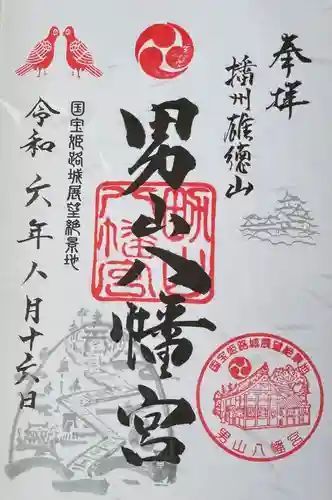 奉拝
播州雄徳山
男山八幡宮
国宝姫路城展望絶景地
令和六年八月十六日
男山八幡宮
国宝姫路城展望絶景地
男山八幡宮